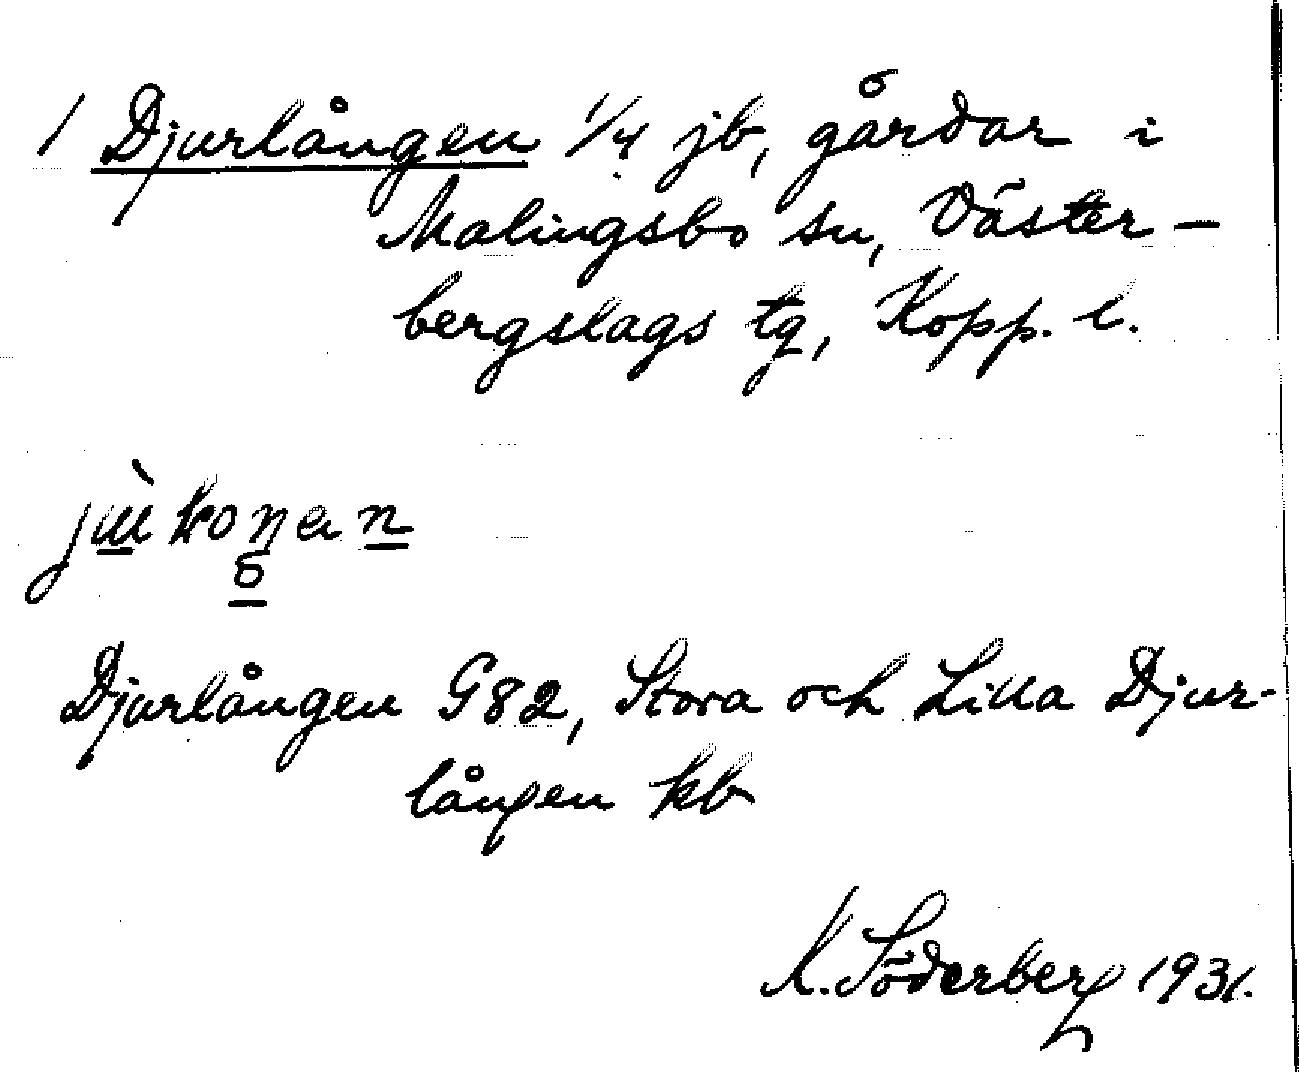 1 Djurlången 1/4 jb, gårdar i
Malingsbo sn, Väster-
bergslags tg, Kopp. l.
Djurlången G82, Stora och Lilla Djur-
lången kb
K. Söderberg 1931.